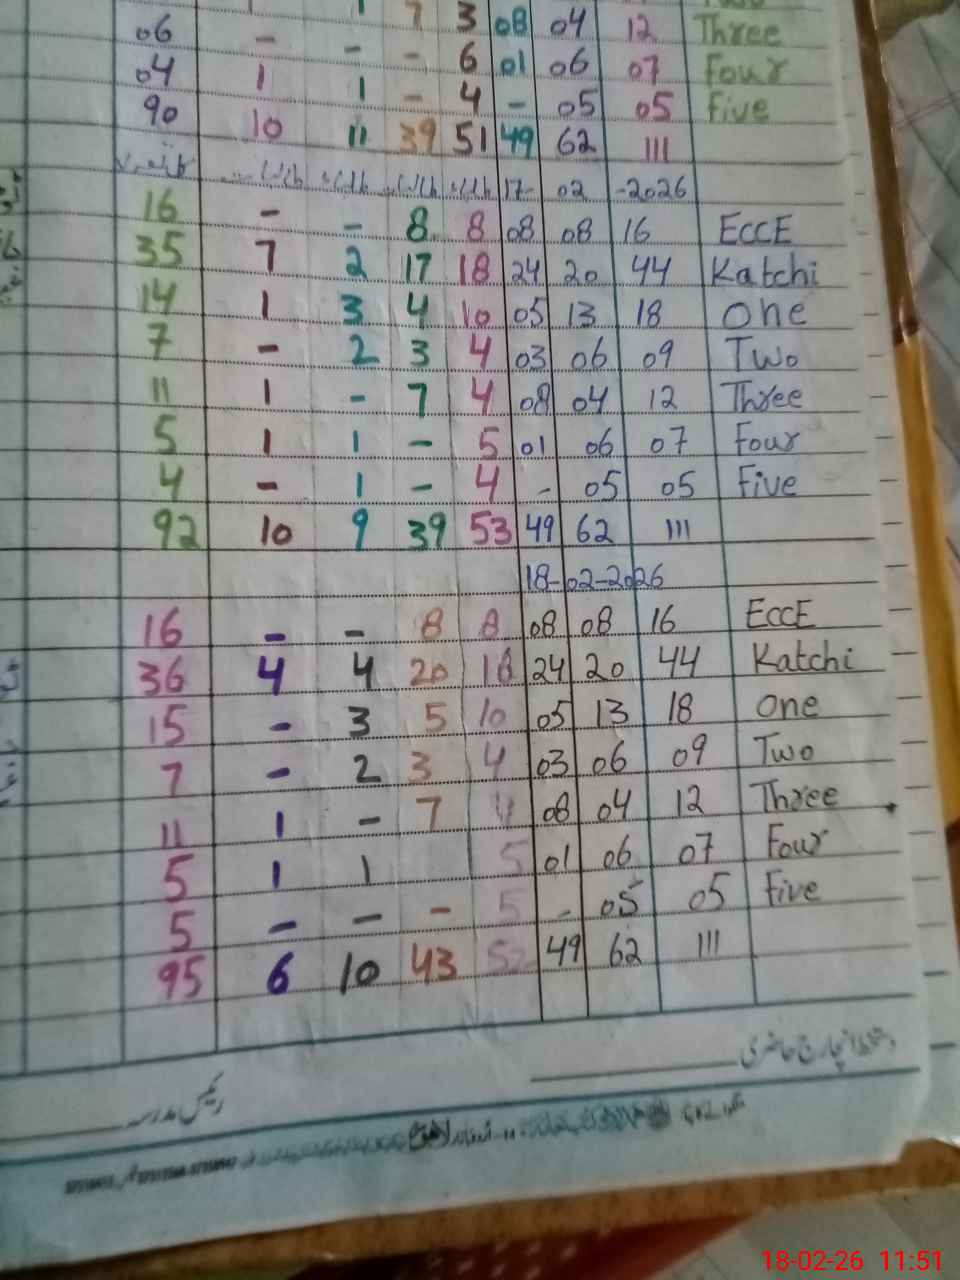 7 3 08
06 - - - 3 08 04 12 Three
04 1 1 - 6 01 06 07 Four
90 10 11 39 4 - 05 05 Five
51 49 62 111
17- 02 -2026
16 - - 8 8 08 08 16 ECCE
35 7 2 17 18 24 20 44 Katchi
14 1 3 4 10 05 13 18 One
7 - 2 3 4 03 06 09 Two
11 1 - 7 4 08 04 12 Three
5 1 1 - 5 01 06 07 Four
4 - 1 - 4 - 05 05 Five
92 10 9 39 53 49 62 111
18-02-2026
16 - - 8 8 08 08 16 ECCE
36 4 4 20 18 24 20 44 Katchi
15 - 3 5 10 05 13 18 One
7 - 2 3 4 03 06 09 Two
11 1 - 7 4 08 04 12 Three
5 1 1 5 01 06 07 Four
5 - - - 5 - 05 05 Five
95 6 10 43 52 49 62 111
دستخط انچارج حاضری
رئیس مدرسہ
18-02-26 11:51